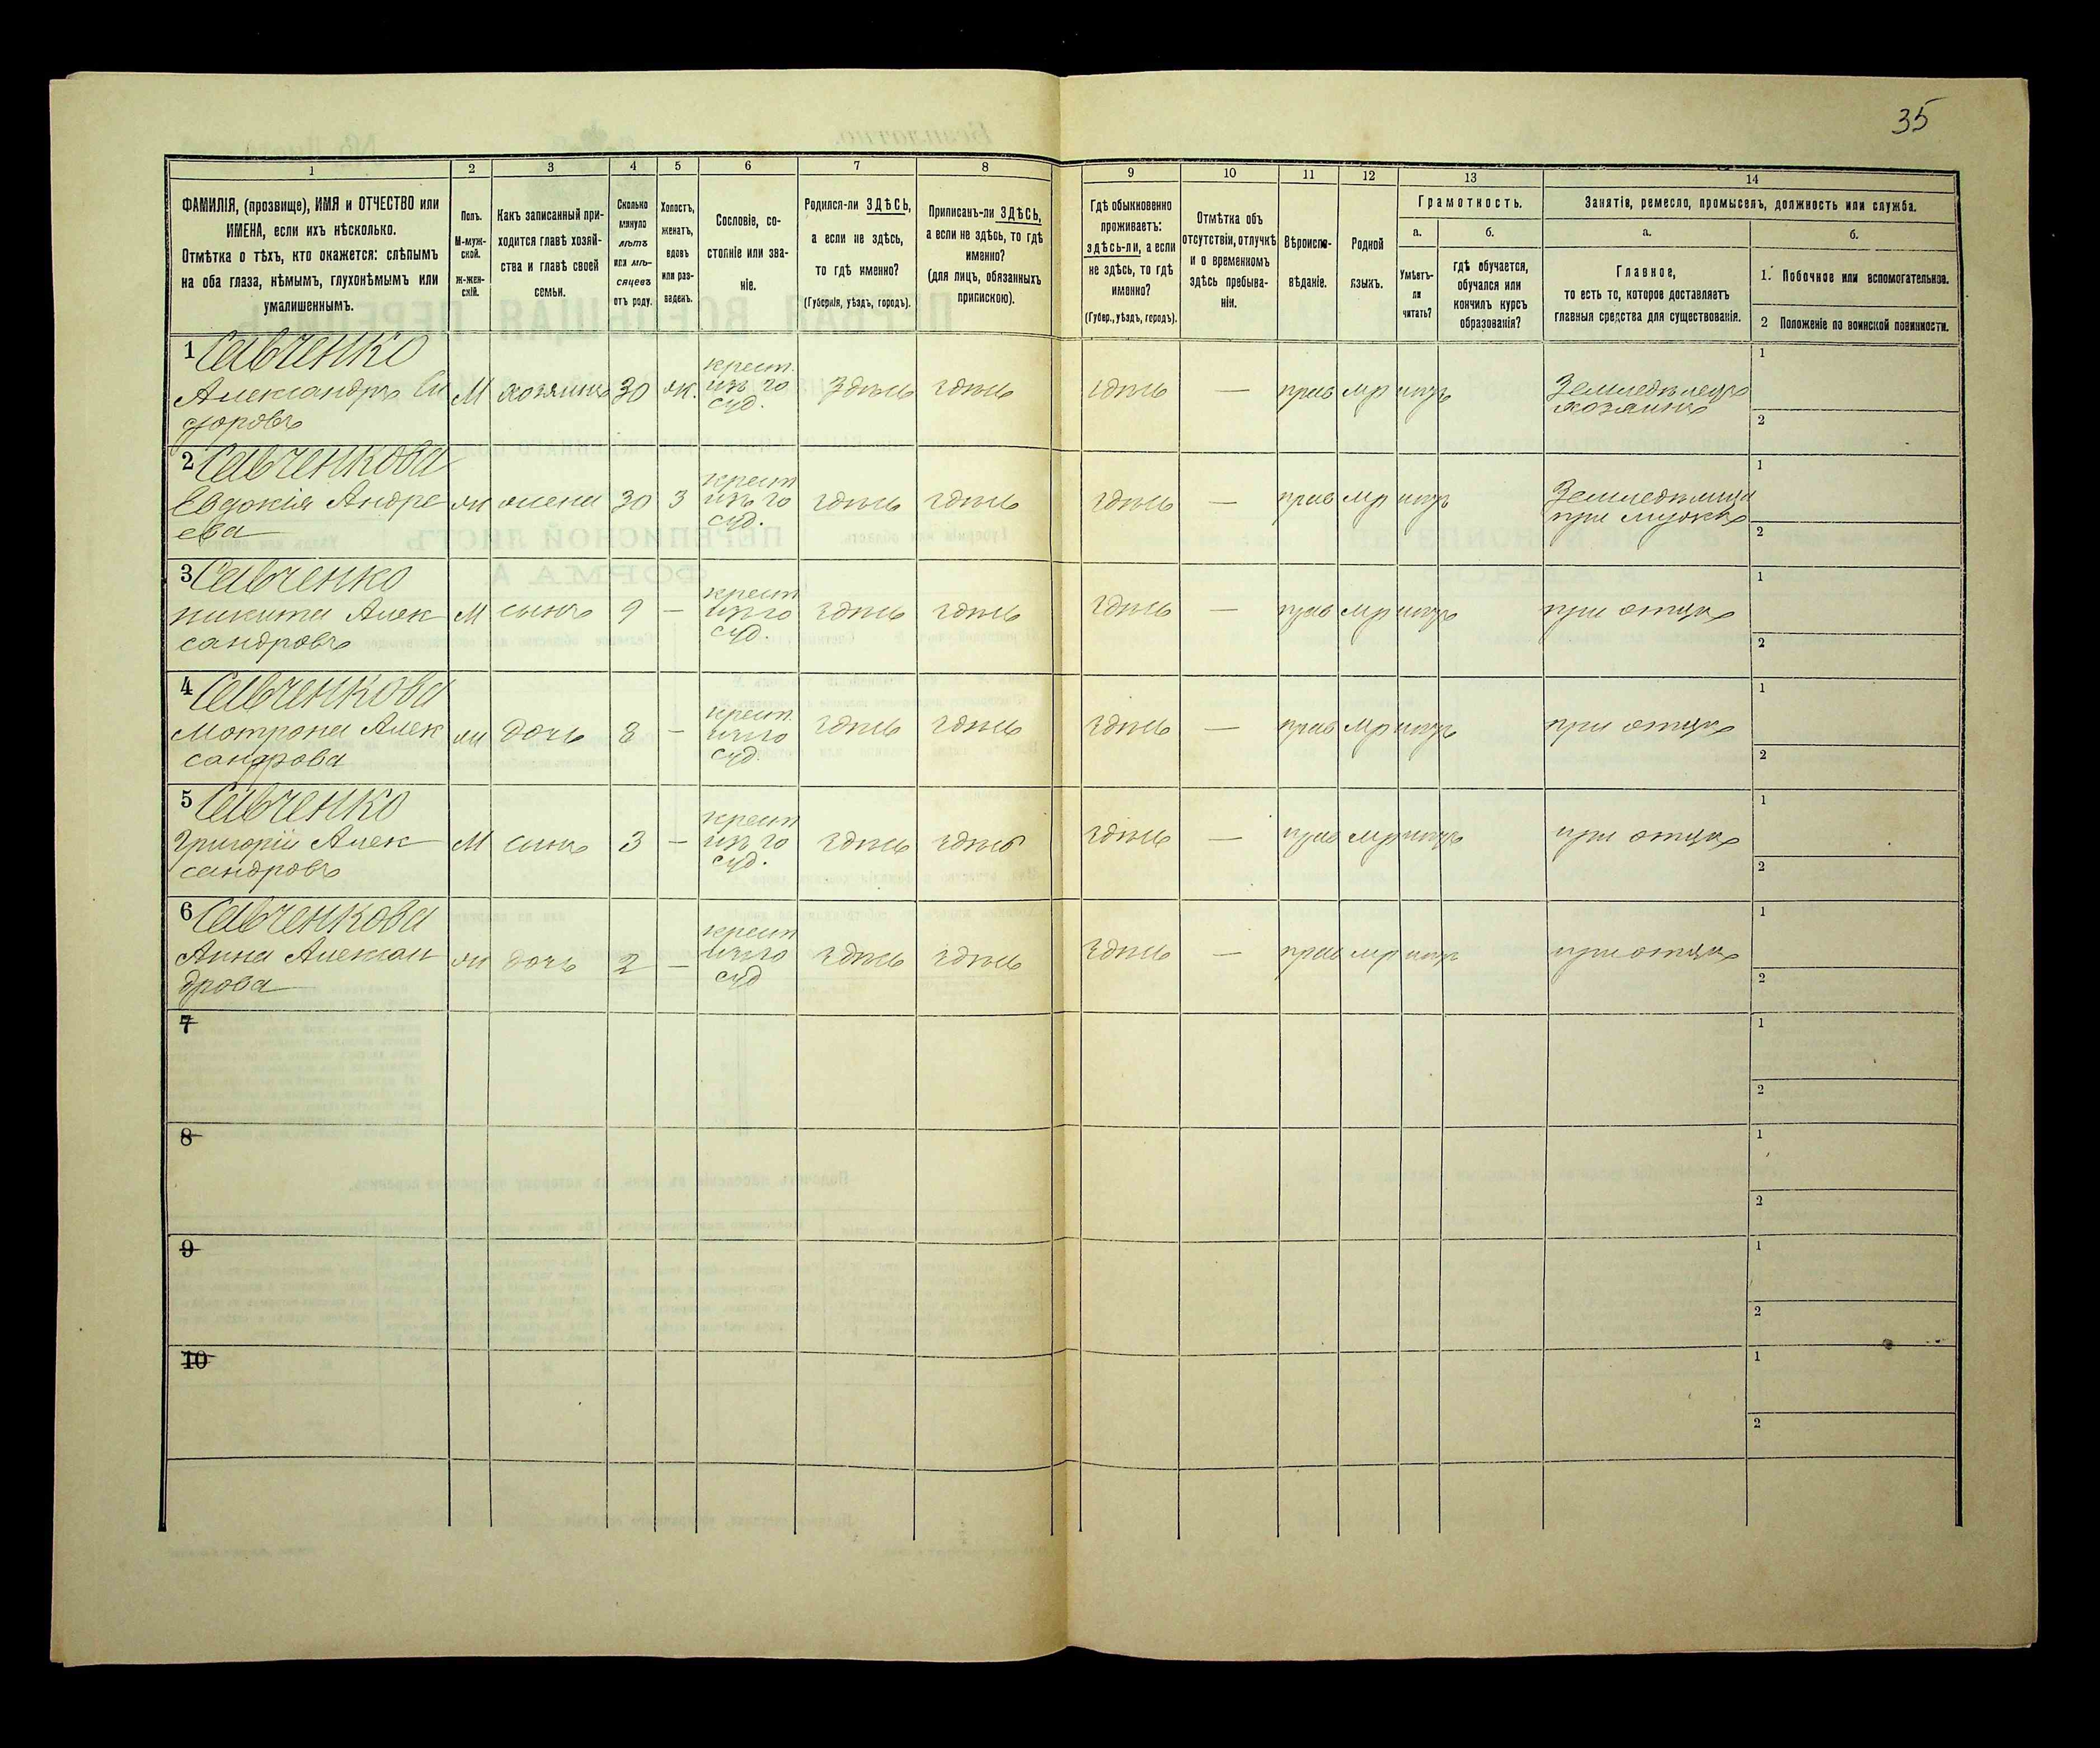 35
1
2
3
4
5
6
7
8
9
10
11
12
13
14
ФАМИЛІЯ, (прозвище), ИМЯ и ОТЧЕСТВО или
ИМЕНА, если ихъ нѣсколько.
Отмѣтка о тѣхъ, кто окажется: слѣпымъ
на оба глаза, нѣмымъ, глухонѣмымъ или
умалишеннымъ.
Полъ.
М-муж-
ской.
ж-жен-
скій.
Какъ записанный при-
ходится главѣ хозяй-
ства и главѣ своей
семьи.
Сколько
минуло
лѣтъ
или мѣ-
сяцевъ
отъ роду.
Холостъ,
женатъ,
вдовъ
или раз-
веденъ.
Сословіе, со-
стояніе или зва-
ніе.
Родился-ли ЗДѢСЬ,
а если не здѣсь,
то гдѣ именно?
(Губернія, уѣздъ, городъ).
Приписанъ-ли ЗДѢСЬ,
а если не здѣсь, то гдѣ
именно?
(для лицъ, обязанныхъ
припискою).
Гдѣ обыкновенно
проживаетъ:
здѣсь-ли, а если
не здѣсь, то гдѣ
именно?
(Губер., уѣздъ, городъ).
Отмѣтка объ
отсутствіи, отлучкѣ
и о временномъ
здѣсь пребыва-
ніи.
Вѣроиспо-
вѣданіе.
Родной
языкъ.
Грамотность.
а.
Умѣетъ-
ли
читать?
б.
гдѣ обучается,
обучался или
кончилъ курсъ
образованія?
Занятіе, ремесло, промыселъ, должность или служба.
а.
Главное,
то есть то, которое доставляетъ
главныя средства для существованія.
б.
1. Побочное или вспомогательное.
2 Положеніе по воинской повинности.
1 Савченко
Александръ Си
доровъ
М хозяинъ 30 ж. крест.
изъ го
суд.
здѣсь здѣсь здѣсь — прав мр нѣтъ Земледѣлецъ
хозяинъ
1
2
2 Савченкова
Евдокія Андре
ева
ж жена 30 З крест
изъ го
суд.
здѣсь здѣсь здѣсь — прав мр нѣтъ Земледѣлица
при мужѣ
1
2
3 Савченко
Никита Алек
сандровъ
М сынъ 9 — крест
изъ го
суд.
здѣсь здѣсь здѣсь — прав мр нѣтъ при отцѣ
1
2
4 Савченкова
Мотрона Алек
сандрова
ж дочь 8 — крест.
изъ го
суд.
здѣсь здѣсь здѣсь — прав мр нѣтъ при отцѣ
1
2
5 Савченко
Григорій Алек
сандровъ
М сынъ 3 — крест
изъ го
суд.
здѣсь здѣсь здѣсь — прав мр нѣтъ при отцѣ
1
2
6 Савченкова
Анна Алексан
дрова
ж дочь 2 — крест
изъ го
суд
здѣсь здѣсь здѣсь — прав мр нѣтъ при отцѣ
1
2
7
1
2
8
1
2
9
1
2
10
1
2